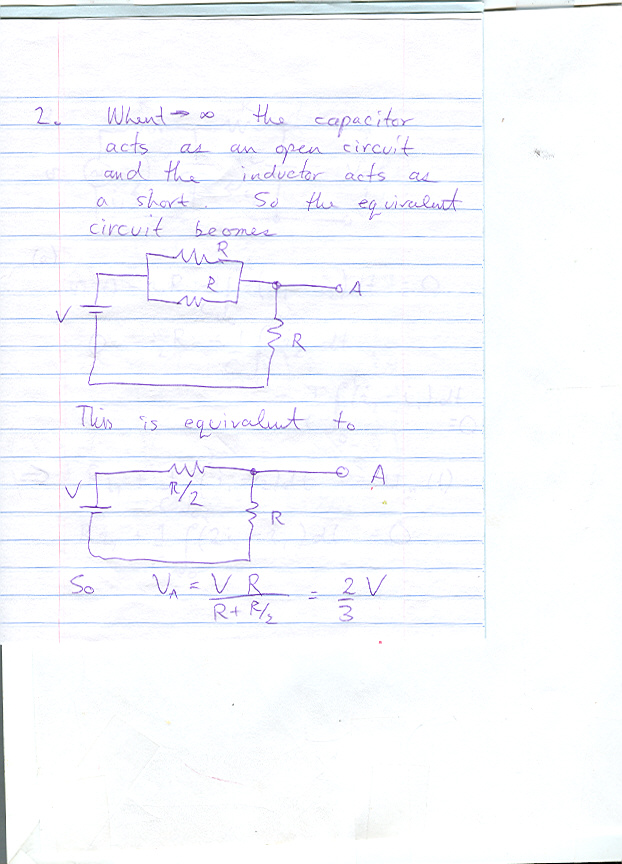 2. When t → ∞ the capacitor
acts as an open circuit
and the inductor acts as
a short. So the equivalent
circuit beomes
R
R
A
V
R
This is equivalent to
A
V
R/2
R
So V_A = V R / (R + R/2) = 2/3 V